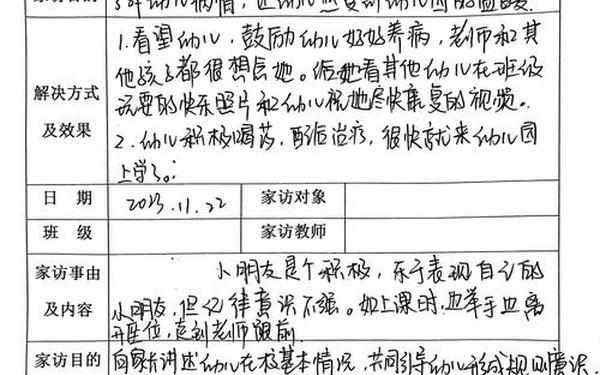 家访目的
了解幼儿病情，让幼儿感受到幼儿园的温暖。
解决方式
及效果
1.看望幼儿，鼓励幼儿好好养病，老师和其
他孩子都很想念她。给她看其他幼儿在班级
玩耍的快乐照片和幼儿祝她尽快康复的视频。
2.幼儿积极喝药，配合治疗，很快就来幼儿园
上学了。
日 期
2023.11.22
家访对象
班 级
家访教师
家访事由
及内容
小朋友是个积极，乐于表现自己的
小朋友，但纪律意识不强。如上课时，边举手边离
开座位，走到老师跟前。
家访目的
向家长讲述幼儿在校基本情况，共同引导幼儿形成规则意识。